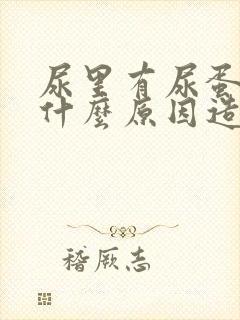 尿里有尿蛋
什麼原因造
稽厥志